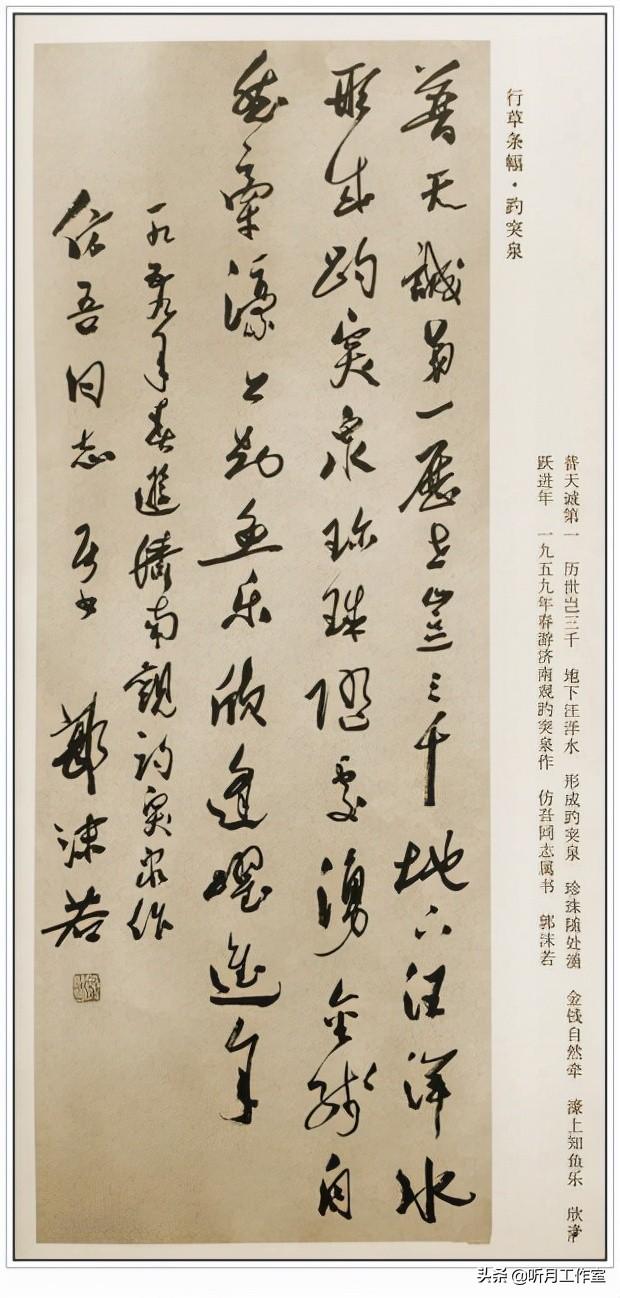 普天诚第一 历世岂三千 地下汪洋水 形成趵突泉 珍珠随处涌 金线自然牵 濠上知鱼乐 欣逢
跃进年 一九五九年春游济南观趵突泉作 仿吾同志属书 郭沫若
行草条幅·趵突泉
普天誠第一歷世豈三千地下汪洋水
形成趵突泉珍珠隨處湧金綫自
然牽濠上知魚樂欣逢躍進年
一九五九年春遊濟南觀趵突泉作
仿吾同志属书 郭沫若
头条 @听月工作室